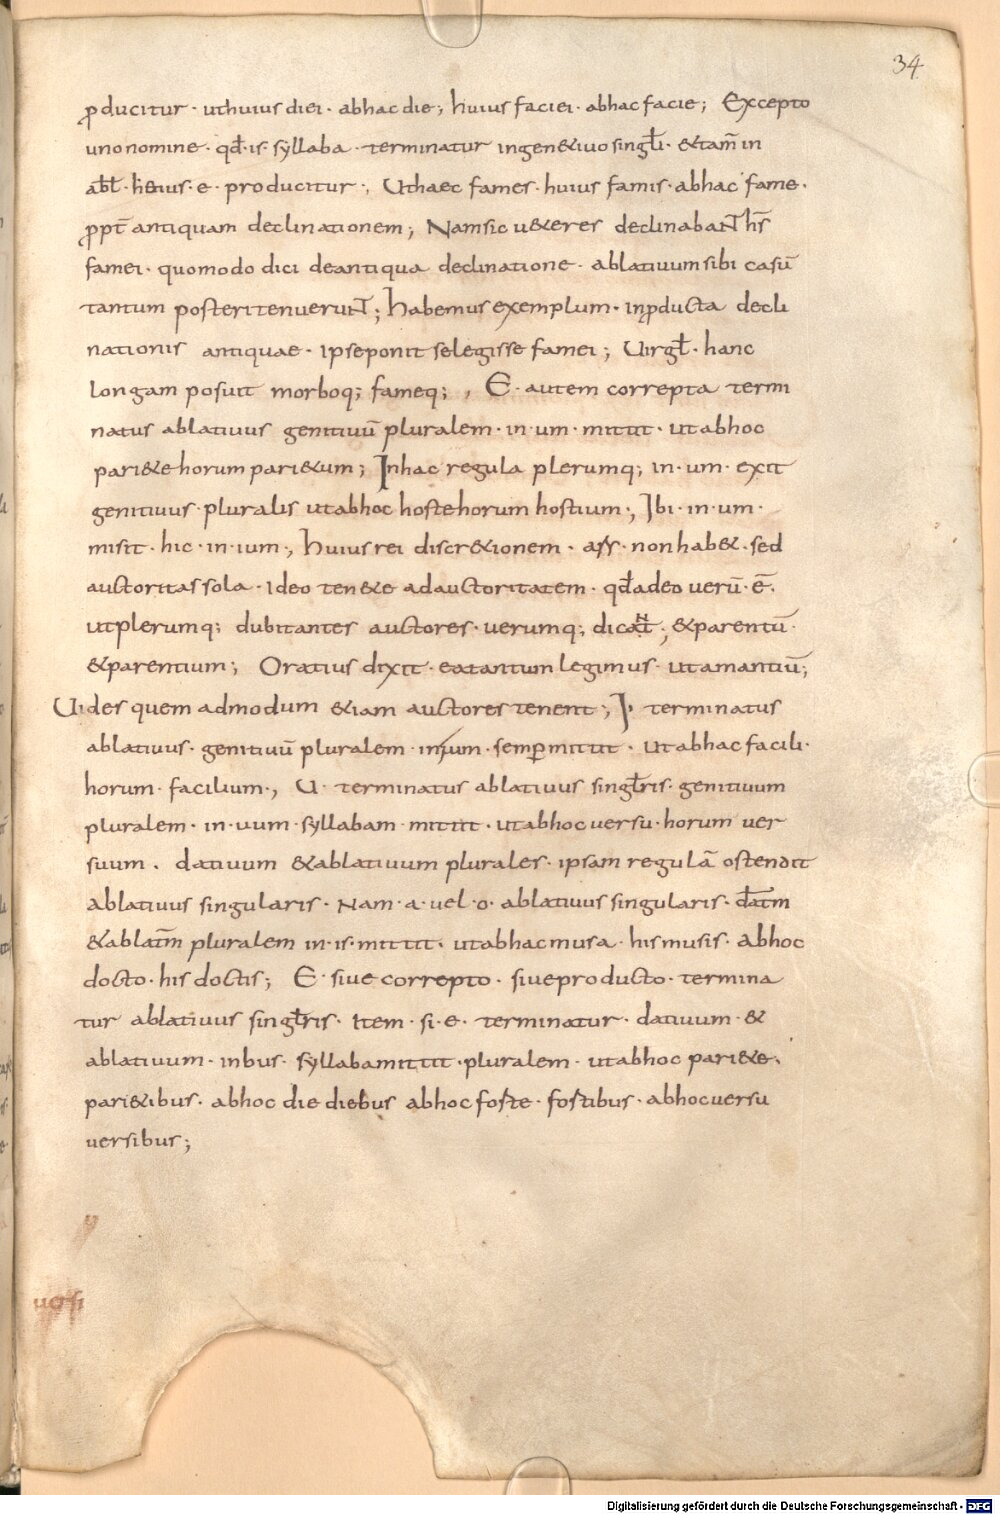 34
ꝓducitur · uthuius diei · abhac die; huius faciei · abhac facie; Excepto
uno nomine · qđ · is · syllaba · terminatur ingen&iuo singƚi · &tam̄ in
abƚ · huius · e · producitur ·, Uthaec fames · huius famis · abhac fame ·
ꝓpt̄ antiquam declinationem; Namsic u&eres declinabaNT hs̄
famei · quomodo dici deantiqua declinatione · ablatiuum sibi casū
tantum posteri tenueruNT; habemus exemplum · inꝓducta decli
nationis antiquae · ipseponit selegisse famei; Uirgƚ · hanc
longam posuit morboq; fameq; , E · autem correpta termi
natus ablatiuus genitiuū pluralem · in · um · mittit · ut abhoc
pari&e horum pari&um; Inhac regula plerumq; in · um · exit
genitiuus · pluralis utabhoc hoste horum hostium ·, Ibi · in · um ·
misit · hic · in · ium ·, huius rei discr&ionem · ars · non hab& · sed
auctoritas sola · Ideo ten&e adauctoritatem · qđadeo uerū · ē ·
utplerumq; dubitantes auctores · uerumq; dicaNt; &parentū ·
&parentium; Oratius dixit · eatantum legimus · ut amantiū;
Uides quem admodum &iam auctores tenent ·, I · terminatus
ablatiuus · genitiuū pluralem · inium · semꝑ mittit · Ut abhac facili ·
horum · facilium ·, U · terminatus ablatiuus singƚris · genitiuum
pluralem · in · uum · syllabam · mittit · ut abhoc uersu · horum uer
suum · datiuum &ablatiuum plurales · ipsam regulā ostendit
ablatiuus singularis · Nam · a · uel · o · ablatiuus singularis · datm̄
&ablatm̄ pluralem in · is · mittit · utabhac musa · his musis · abhoc
docto · his doctis; E · siue correpto · siue producto · termina
tur ablatiuus singƚris · Item · si · e · terminatur · datiuum · &
ablatiuum · inbus · syllabamittit · pluralem · utabhoc pari&e ·
pari&ibus · abhoc die diebus abhoc foste · fostibus · abhoc uersu
uersibus;
Digitalisierung gefördert durch die Deutsche Forschungsgemeinschaft · DFG